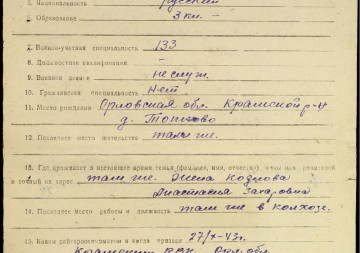 5. Национальность русский
6. Образование 3 кл. -
7. Военно-учетная специальность 133
8. Должностная квалификация -
9. Военное звание не служ.
10. Гражданская специальность Нет
11. Место рождения Орловская обл. Кромской р-н
д.
12. Последнее место жительства там же.
13. Где проживает в настоящее время семья (фамилия, имя, отчество)
и точный их адрес там же. Жена Козлова
Анастасия Захаровна
14. Последнее место работы и должность там же в колхозе.
15. Каким райвоенкоматом и когда призван 27/X-43г.
Кромским РВК Орл. обл.